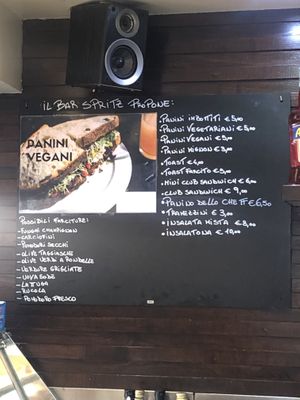 IL BAR SPRITZ PROPONE:
PANINI
VEGANI
POSSIBILI FARCITURE:
- FUNGHI CHAMPIGNON
- CARCIOFINI
- POMODORI SECCHI
- OLIVE TAGGIASCHE
- OLIVE VERDI A RONDELLE
- VERDURE GRIGLIATE
- UOVA SODE
- LATTUGA
- RUCOLA
- POMODORO FRESCO
• PANINI IMBOTTITI € 5,00
• PANINI VEGETARIANI € 5,00
• PANINI VEGANI € 5,00
• PANINI
• TOAST € 4,00
• TOAST FARCITO € 5,00
• MINI CLUB SANDWICH € 6,00
• CLUB SANDWICH € 9,00
• PANINO DELLO CHEF € 6,50
• TRAMEZZINI € 3,00
• INSALATA MISTA € 8,00
• INSALATONA € 10,00